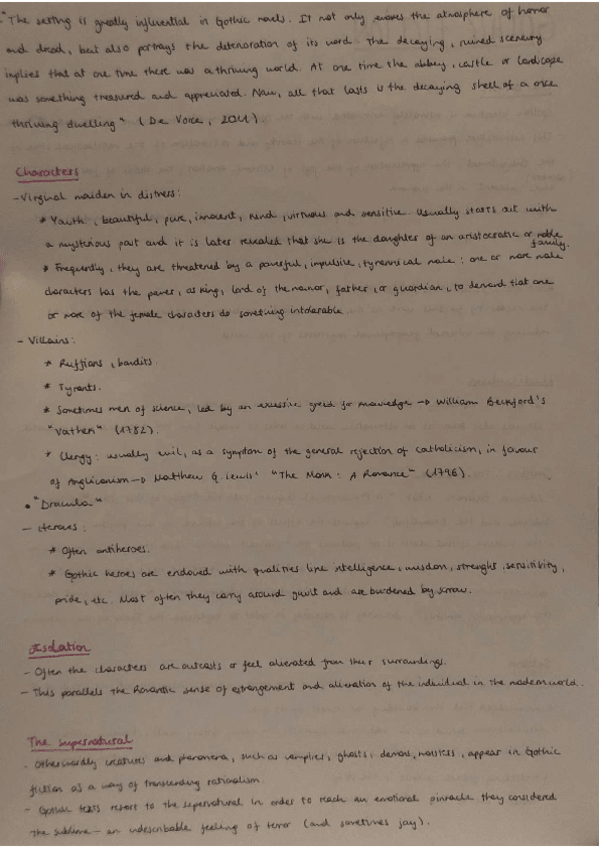 "The setting is greatly influential in Gothic novels. It not only evokes the atmosphere of horror
and dread, but also portrays the deterioration of its world. The decaying, ruined scenery
implies that at one time there was a thriving world. At one time the abbey, castle or landscape
was something treasured and appreciated. Now, all that lasts is the decaying shell of a once
thriving dwelling" (De Vore, 2011).
Characters
- Virginal maiden in distress:
* Youth, beautiful, pure, innocent, kind, virtuous and sensitive. Usually starts out with
a mysterious past and it is later revealed that she is the daughter of an aristocratic or noble
family.
* Frequently, they are threatened by a powerful, impulsive, tyrannical male: one or more male
characters has the power, as king, lord of the manor, father, or guardian, to demand that one
or more of the female characters do something intolerable.
- Villains:
* Ruffians, bandits.
* Tyrants.
* Sometimes men of science, led by an excessive greed for knowledge → William Beckford's
"Vathek" (1782).
* Clergy: usually evil, as a symptom of the general rejection of catholicism, in favour
of Anglicanism → Matthew G. Lewis' "The Monk: A Romance" (1796).
• "Dracula"
- Heroes:
* Often antiheroes.
* Gothic heroes are endowed with qualities like intelligence, wisdom, strenght, sensitivity,
pride, etc. Most often they carry around guilt and are burdened by sorrow.
Isolation
- Often the characters are outcasts or feel alienated from their surroundings.
- This parallels the Romantic sense of estrangement and alienation of the individual in the modern world.
The supernatural
- Otherwordly creatures and phenomena, such as vampires, ghosts, demons, monsters, appear in Gothic
fiction as a way of transcending rationalism.
- Gothic texts resort to the supernatural in order to reach an emotional pinnacle they considered
The sublime - an indescribable feeling of terror (and sometimes joy).